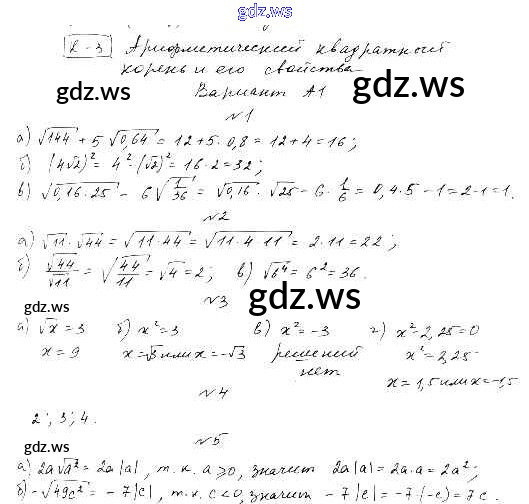 gdz.ws
К-3 Арифметический квадратный
корень и его свойства
gdz.ws gdz.ws
Вариант А1
№1
а) √144 + 5 √0,64 = 12+5·0,8 = 12+4=16;
б) (4√2)² = 4²·(√2)² = 16·2 = 32;
в) √0,16·25 − 6√1/36 = √0,16 · √25 − 6·1/6 = 0,4·5 −1=2−1=1.
№2
а) √11 · √44 = √11·44 = √11·4·11 = 2·11 = 22;
б) √44/√11 = √44/11 = √4 = 2; в) √6⁴ = 6² = 36.
gdz.ws gdz.ws
№3
а) √x = 3 б) x² = 3 в) x² = −3 г) x² − 2,25 = 0
x = 9 x = √3 или x = −√3 решений x² = 2,25
нет x = 1,5 или x = −1,5
№4
2; 3; 4.
gdz.ws
№5
а) 2a√a² = 2a|a|, т.к. a ⩾ 0, значит 2a|a| = 2a·a = 2a²;
б) −√49c² = −7|c|, т.к. c < 0, значит −7|c| = −7·(−c) = 7c.
gdz.ws